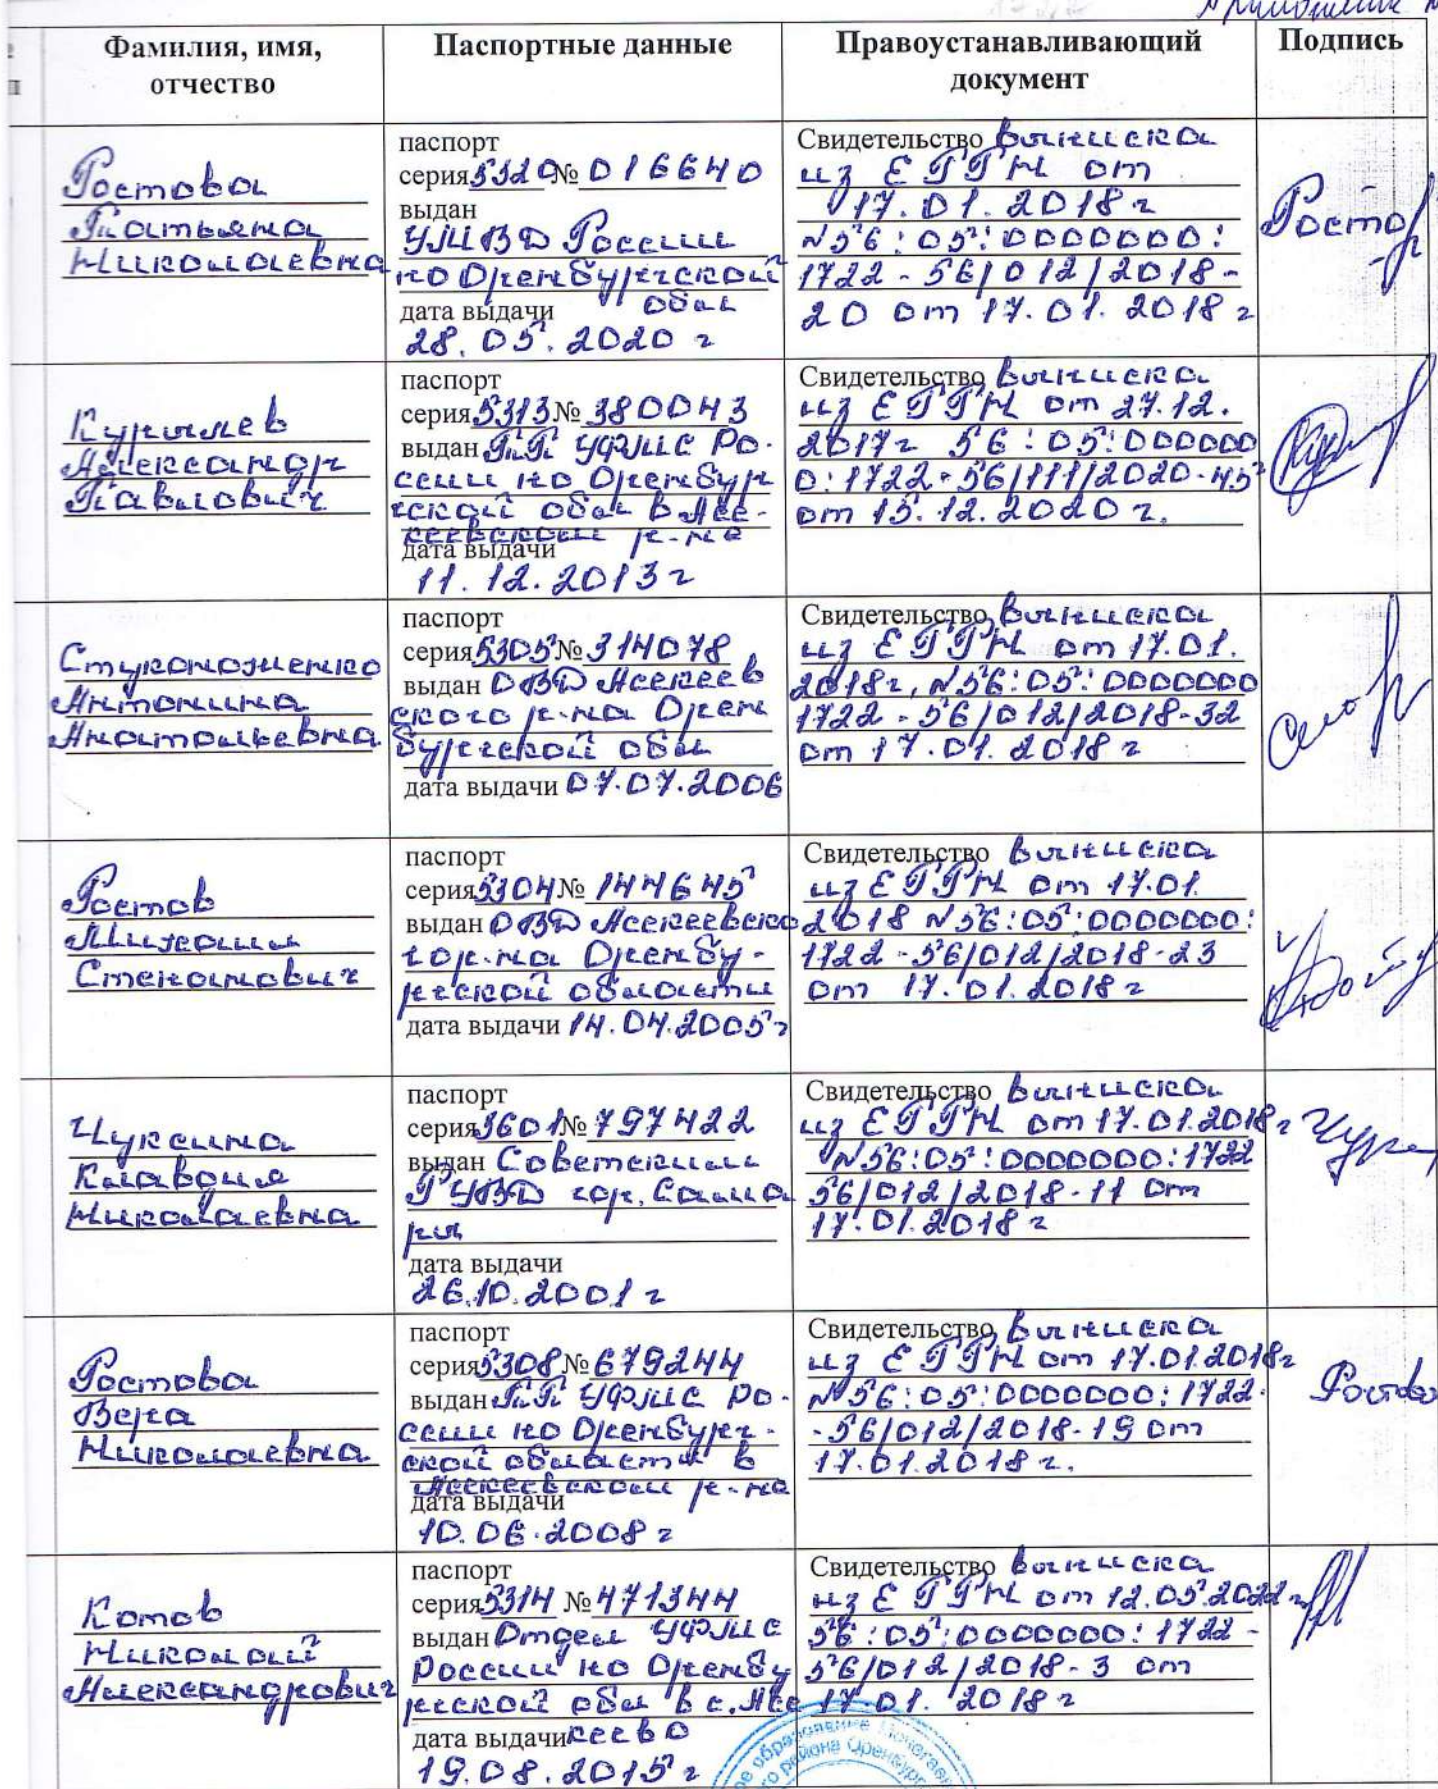 Фамилия, имя,
отчество
Паспортные данные
Правоустанавливающий
документ
Подпись
Ростова
Татьяна
Николаевна
паспорт
серия 5320 № 016640
выдан
УМВД России
по Оренбургской
обл
дата выдачи
28.05.2020 г
Свидетельство выписка
из ЕГРН от
17.01.2018 г
№56:05:0000000:
1722-56/012/2018-
20 от 17.01.2018 г
Ростов
Курылев
Александр
Павлович
паспорт
серия 5313 № 380043
выдан ТП УФМС Ро-
ссии по Оренбур
гской обл в Асе-
кеевском р-не
дата выдачи
11.12.2013 г
Свидетельство выписка
из ЕГРН от 27.12.
2017 г 56:05:000000
0:1722-56/111/2020-45
от 15.12.2020 г.
Стукоможенко
Антонина
Анатольевна
паспорт
серия 5305 № 314078
выдан ОВД Асекеев
ского р-на Орен
бургской обл
дата выдачи 07.07.2006
Свидетельство выписка
из ЕГРН от 17.01.
2018г, №56:05:0000000
1722-56/012/2018-32
от 17.01.2018 г
Ростов
Михаил
Степанович
паспорт
серия 5304 № 144645
выдан ОВД Асекеевско
го р-на Оренбу-
ргской области
дата выдачи 14.04.2005 г
Свидетельство выписка
из ЕГРН от 17.01
2018 №56:05:0000000:
1722-56/012/2018-23
от 17.01.2018 г
Чуксина
Клавдия
Николаевна
паспорт
серия 3601 № 797422
выдан Советским
РУВД гор. Сама
ры
дата выдачи
26.10.2001 г
Свидетельство выписка
из ЕГРН от 17.01.2018 г
№56:05:0000000:1722
56/012/2018-11 от
17.01.2018 г
Ростова
Вера
Николаевна
паспорт
серия 5308 № 679244
выдан ТП УФМС Ро-
ссии по Оренбург-
ской области в
Асекеевском р-не
дата выдачи
10.06.2008 г
Свидетельство выписка
из ЕГРН от 17.01.2018г
№56:05:0000000:1722-
-56/012/2018-19 от
17.01.2018 г.
Ростова
Котов
Николай
Александрович
паспорт
серия 5314 № 471344
выдан Отдел УФМС
России по Оренбу
ргской обл в с. Асе
кеево
дата выдачи
19.08.2015 г
Свидетельство выписка
из ЕГРН от 12.05.2022 г
56:05:0000000:1722-
56/012/2018-3 от
17.01.2018 г
образование
района Оренбург